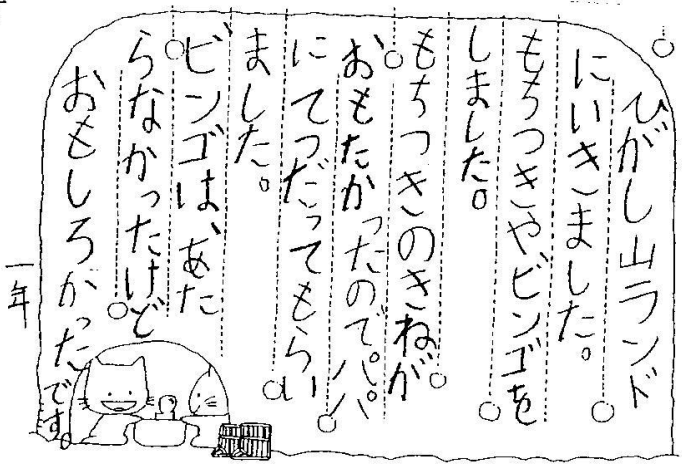 ひがし山ランド
にいきました。
もちつきやビンゴを
しました。
もちつきのきねが
おもたかったので、パパ
にてつだってもらい
ました。
ビンゴは、あた
らなかったけど
おもしろかったです。
一年